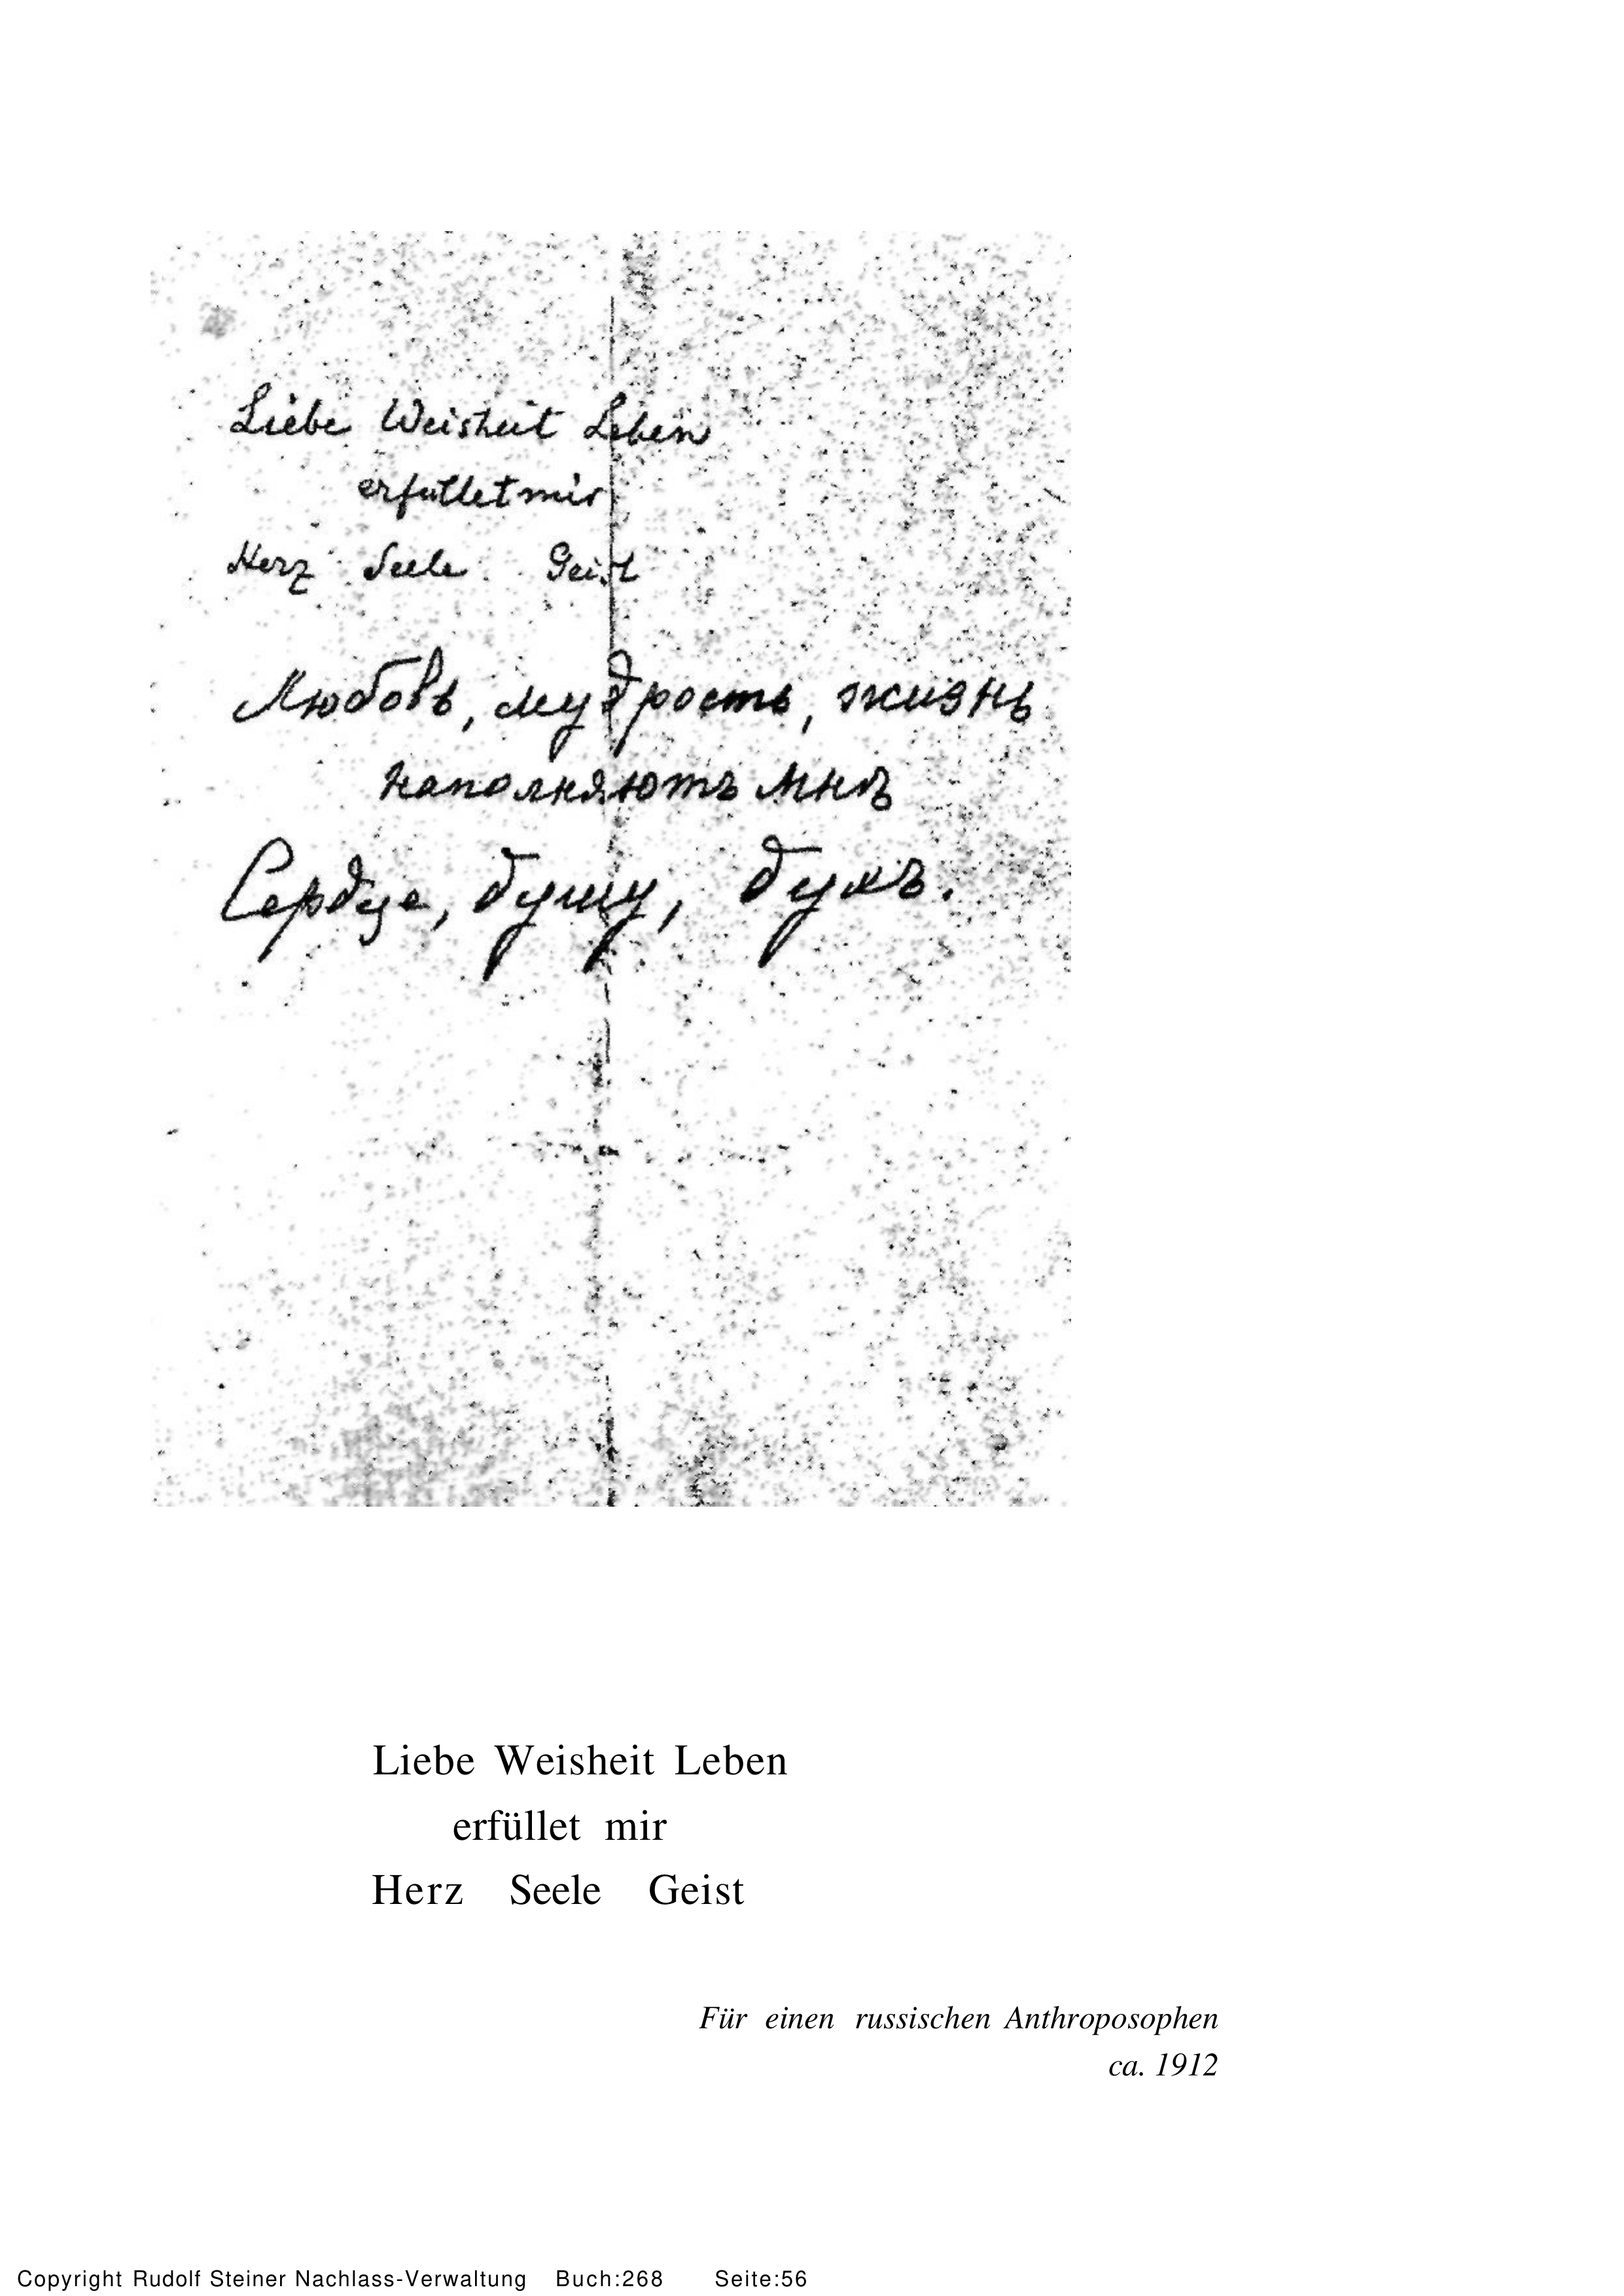 Liebe Weisheit Leben
erfüllet mir
Herz Seele Geist
Любовь, мудрость, жизнь
наполняютъ мнѣ
Сердце, душу, духъ.
Liebe Weisheit Leben
erfüllet mir
Herz Seele Geist
Für einen russischen Anthroposophen
ca. 1912
Copyright Rudolf Steiner Nachlass-Verwaltung Buch:268 Seite:56